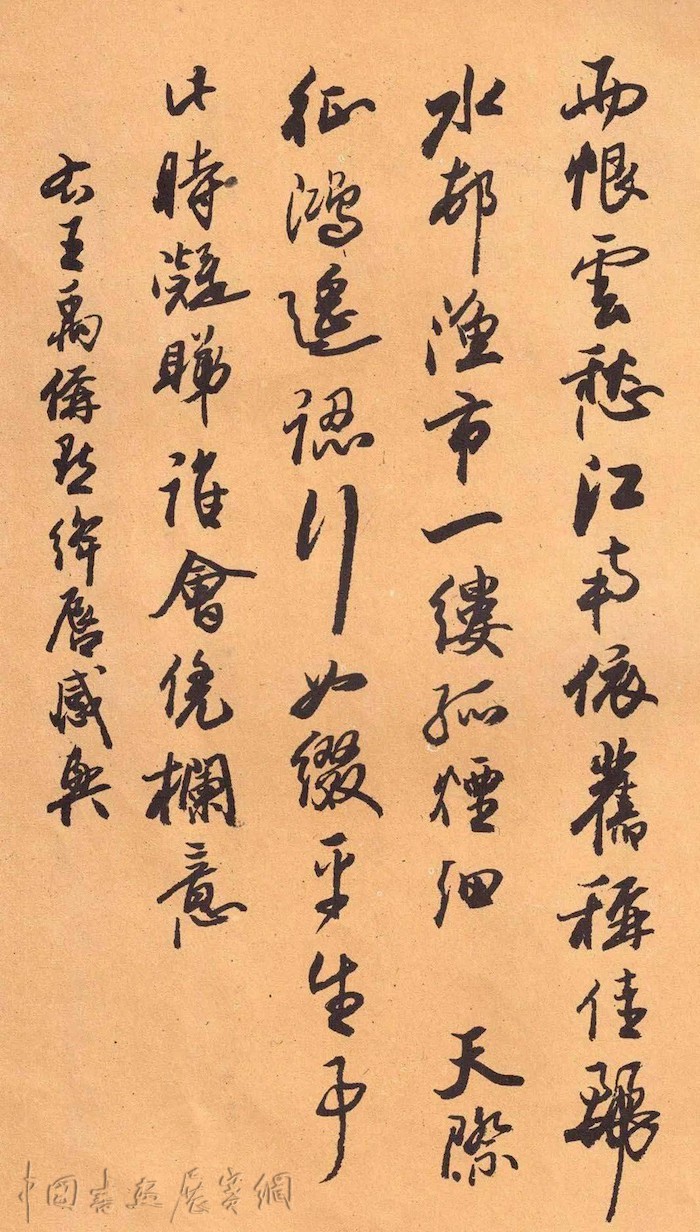 雨恨雲愁江南依舊稱佳麗
水邨漁市一縷孤煙細 天際
征鴻遙認行如綴平生事
此時凝睇誰會凭欄意
右王禹偁點絳唇感興